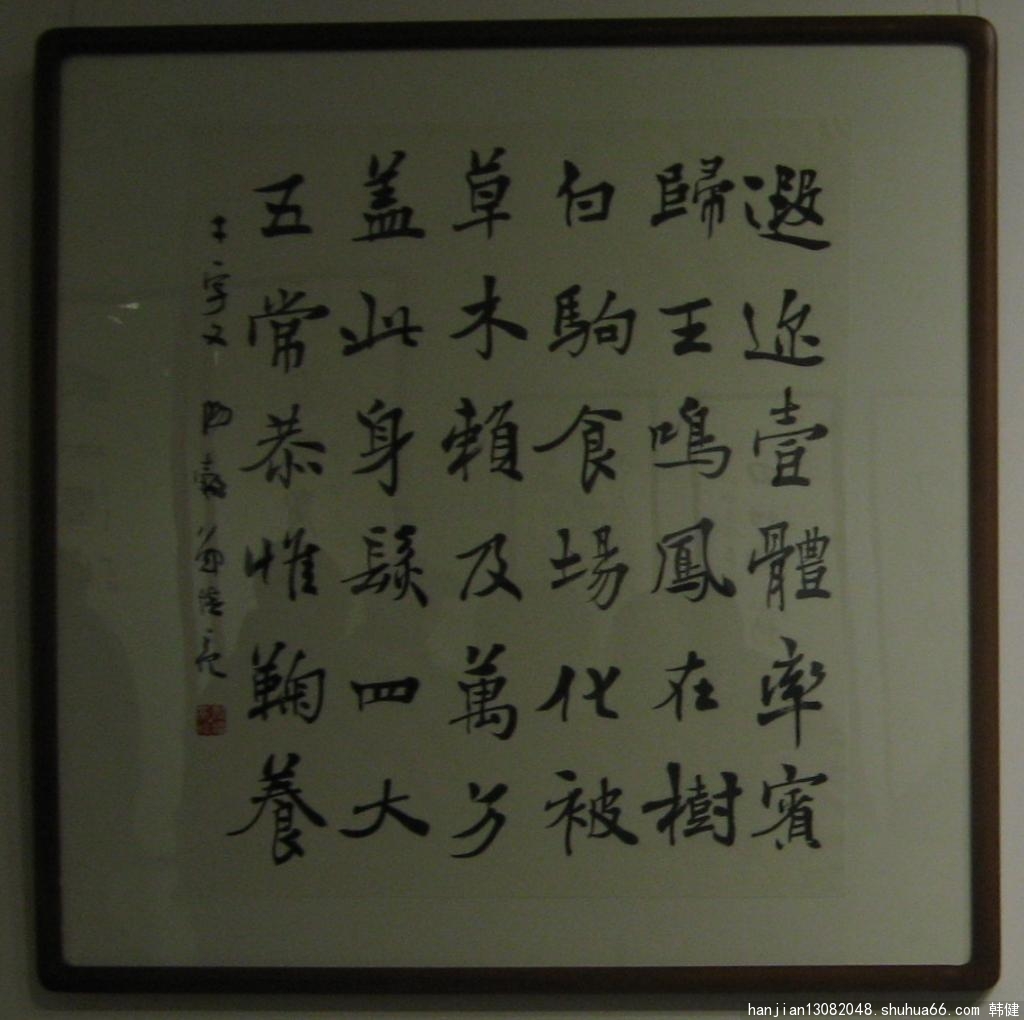 遐迩壹體率賓
歸王鳴鳳在樹
白駒食場化被
草木賴及萬方
盖此身髮四大
五常恭惟鞠養
千字文
hanjian13082048.shuhua66.com 韩健